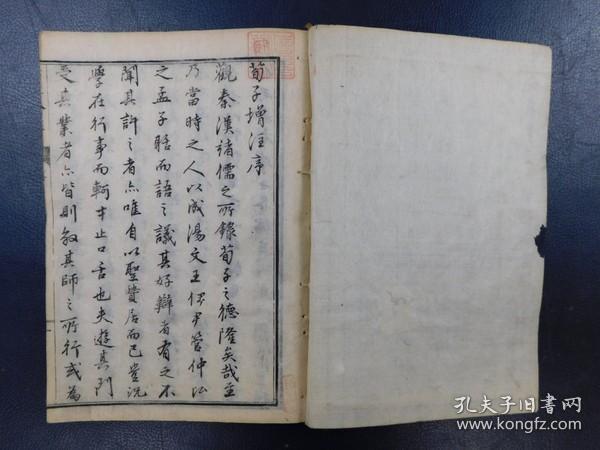 荀子增注序
觀秦漢諸儒之所錄荀子之德隆矣哉至
乃當時之人以成湯文王伊尹管仲
之孟子晤而語之議其好辯者有之不
聞其許之者亦唯自以聖賢居而已豈況
學在行事而軻才止口舌也夫遊其門
受其業者亦皆則效其師之所行或為
孔夫子旧书网
www.kongfz.com